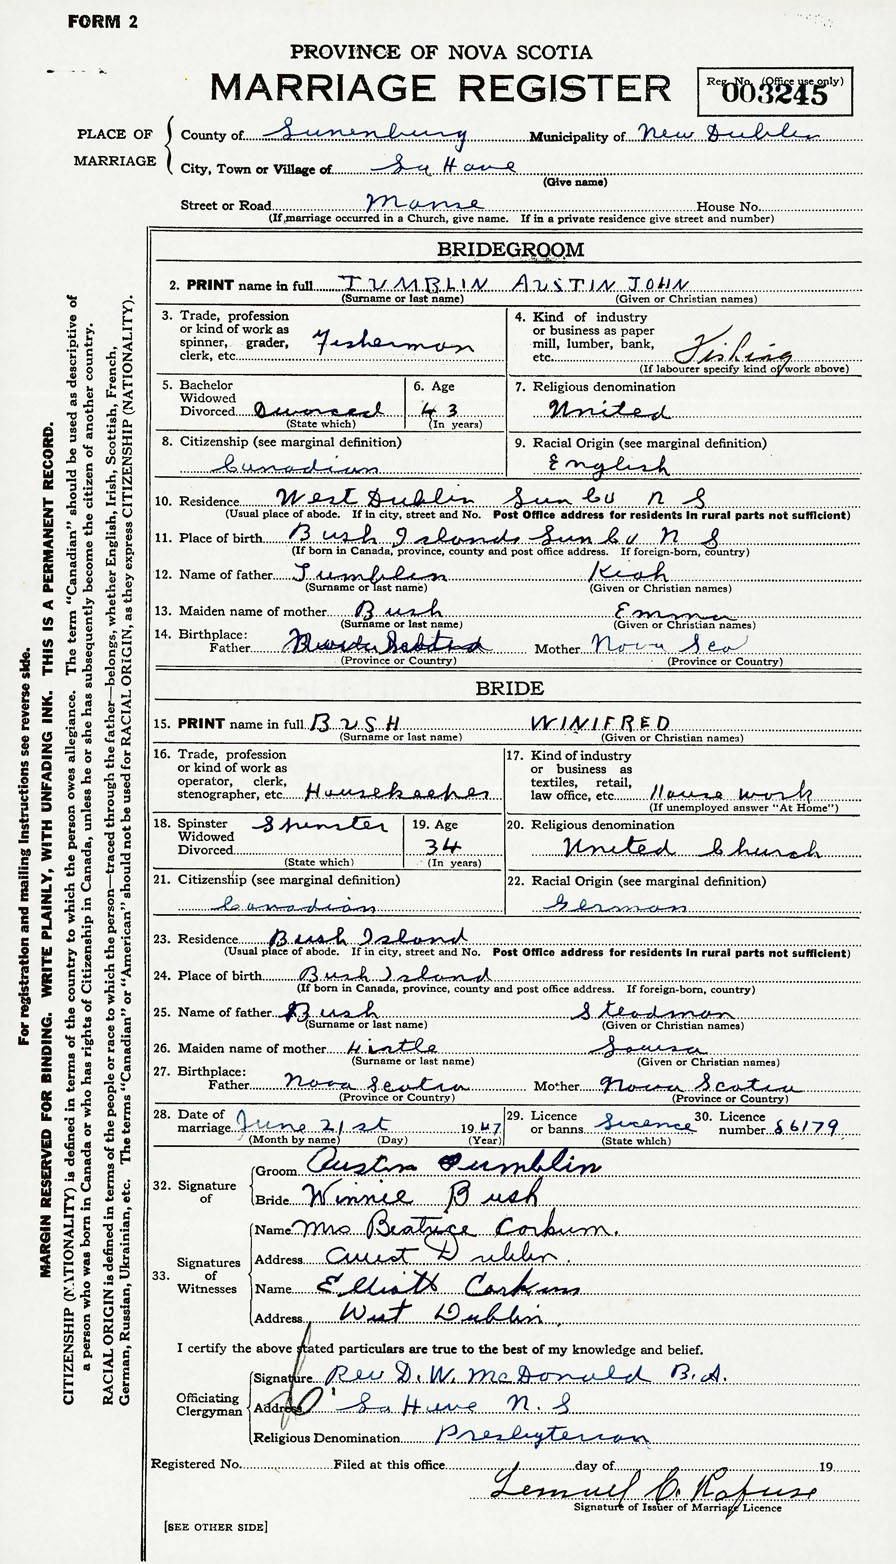 FORM 2
PROVINCE OF NOVA SCOTIA
MARRIAGE REGISTER
Reg. No. (Office use only)
003245
PLACE OF MARRIAGE
County of Lunenburg Municipality of New Dublin
City, Town or Village of La Have
(Give name)
Street or Road Manse House No.
(If marriage occurred in a Church, give name. If in a private residence give street and number)
BRIDEGROOM
2. PRINT name in full TUMBLIN AUSTIN JOHN
(Surname or last name) (Given or Christian names)
3. Trade, profession or kind of work as spinner, grader, clerk, etc. Fisherman
4. Kind of industry or business as paper mill, lumber, bank, etc. Fishing
(If labourer specify kind of work above)
5. Bachelor Widowed Divorced Divorced
(State which)
6. Age 43
(In years)
7. Religious denomination
United
8. Citizenship (see marginal definition)
Canadian
9. Racial Origin (see marginal definition)
English
10. Residence West Dublin Lun Co N S
(Usual place of abode. If in city, street and No. Post Office address for residents in rural parts not sufficient)
11. Place of birth Bush Islands Lun Co N S
(If born in Canada, province, county and post office address. If foreign-born, country)
12. Name of father Tumblin Kiah
(Surname or last name) (Given or Christian names)
13. Maiden name of mother Bush Emma
(Surname or last name) (Given or Christian names)
14. Birthplace:
Father Nova Scotia Mother Nova Sco
(Province or Country) (Province or Country)
BRIDE
15. PRINT name in full BUSH WINIFRED
(Surname or last name) (Given or Christian names)
16. Trade, profession or kind of work as operator, clerk, stenographer, etc. Housekeeper
17. Kind of industry or business as textiles, retail, law office, etc. House work
(If unemployed answer "At Home")
18. Spinster Widowed Divorced Spinster
(State which)
19. Age
34
(In years)
20. Religious denomination
United Church
21. Citizenship (see marginal definition)
Canadian
22. Racial Origin (see marginal definition)
German
23. Residence Bush Island
(Usual place of abode. If in city, street and No. Post Office address for residents in rural parts not sufficient)
24. Place of birth Bush Island
(If born in Canada, province, county and post office address. If foreign-born, country)
25. Name of father Bush Steadman
(Surname or last name) (Given or Christian names)
26. Maiden name of mother Hirtle Louisa
(Surname or last name) (Given or Christian names)
27. Birthplace:
Father Nova Scotia Mother Nova Scotia
(Province or Country) (Province or Country)
28. Date of marriage June 21st 1947
(Month by name) (Day) (Year)
29. Licence or banns Licence
(State which)
30. Licence number 86179
32. Signature of
Groom Austin Tumblin
Bride Winnie Bush
33. Signatures of Witnesses
Name Mrs Beatrice Corkum.
Address West Dublin.
Name Elliott Corkum
Address West Dublin.
I certify the above stated particulars are true to the best of my knowledge and belief.
Officiating Clergyman
Signature Rev D. W. McDonald B.A.
Address La Have N. S
Religious Denomination Presbyterian
Registered No. Filed at this office day of 19
Lemuel C. Rafuse
Signature of Issuer of Marriage Licence
[SEE OTHER SIDE]
For registration and mailing instructions see reverse side.
MARGIN RESERVED FOR BINDING. WRITE PLAINLY, WITH UNFADING INK. THIS IS A PERMANENT RECORD.
CITIZENSHIP (NATIONALITY) is defined in terms of the country to which the person owes allegiance. The term "Canadian" should be used as descriptive of
a person who was born in Canada or who has rights of Citizenship in Canada, unless he or she has subsequently become the citizen of another country.
RACIAL ORIGIN is defined in terms of the people or race to which the person—traced through the father—belongs, whether English, Irish, Scottish, French,
German, Russian, Ukrainian, etc. The terms "Canadian" or "American" should not be used for RACIAL ORIGIN, as they express CITIZENSHIP (NATIONALITY).